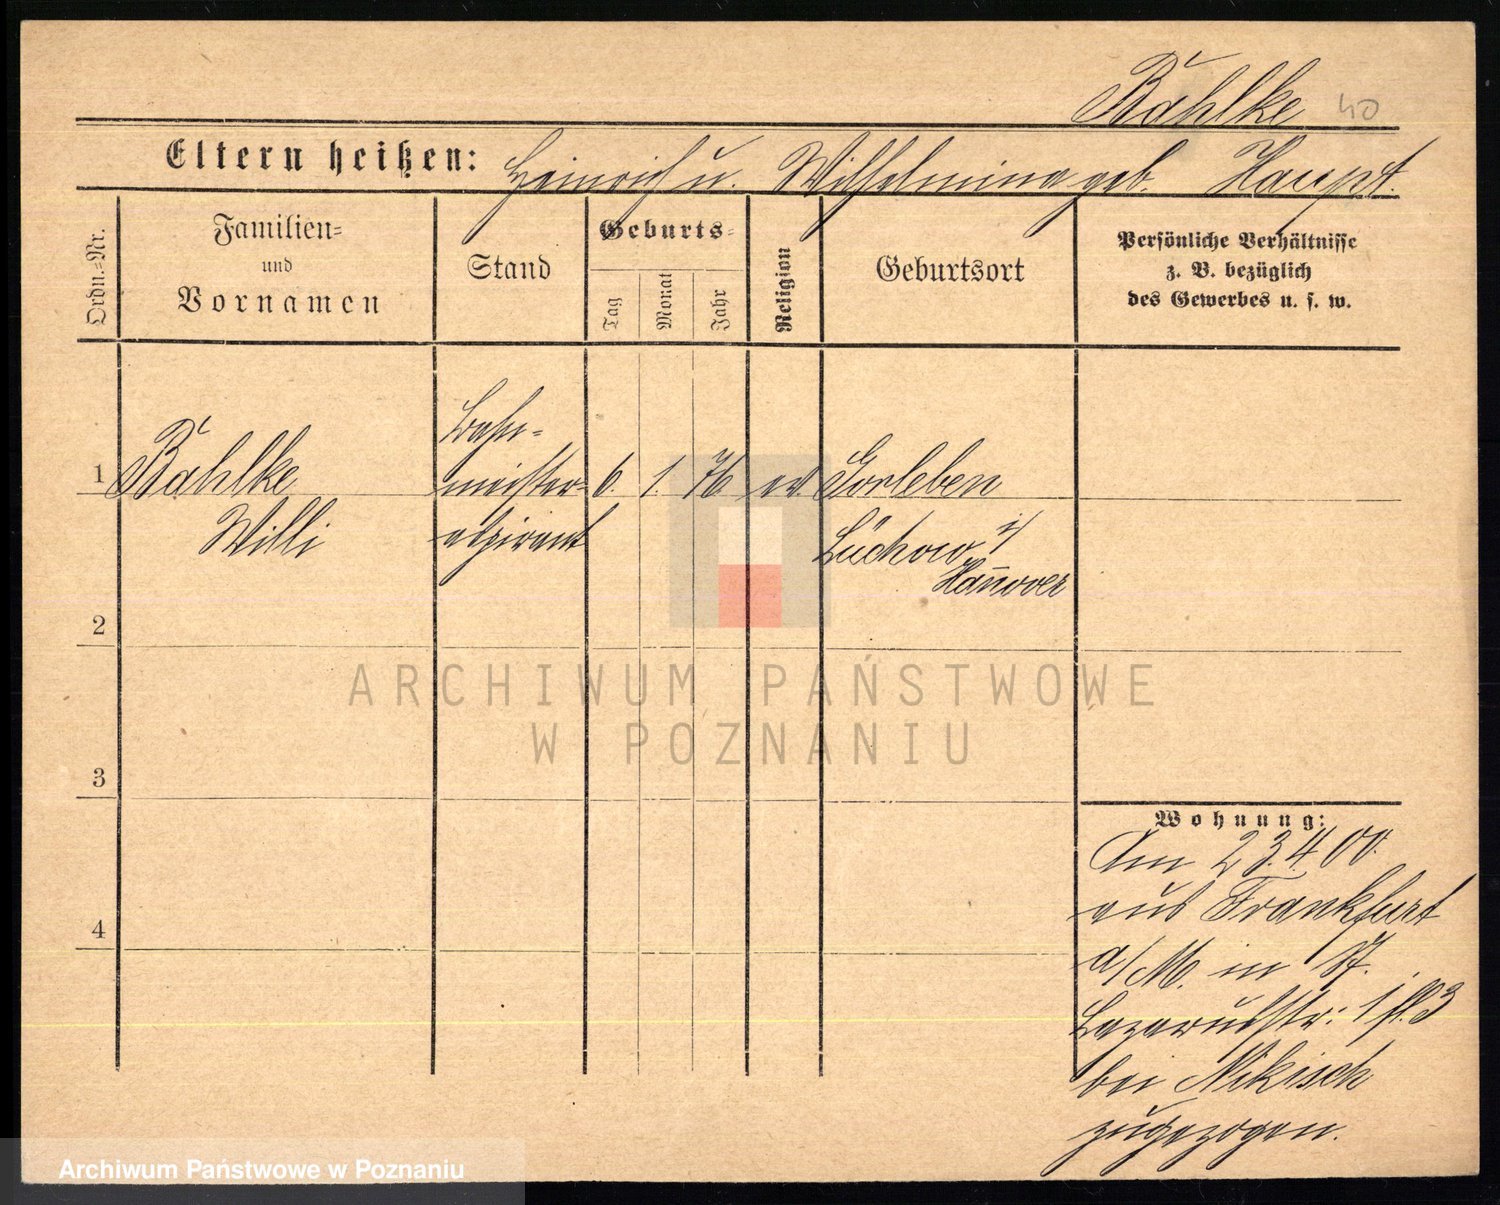 Bahlke 40
Eltern heißen: Heinrich u. Wilhelmina geb. Haupt.
Ordn.-Nr.
Familien-
und
Vornamen
Stand
Geburts-
Tag
Monat
Jahr
Religion
Geburtsort
Persönliche Verhältnisse
z. B. bezüglich
des Gewerbes u. s. w.
1 Bahlke
Willi
Bahn-
meister-
aspirant
6. 1. 76 ev. Gorleben
Lüchow i/
Han̄over
2
3
4
Wohnung:
Am 23.4.00.
aus Frankfurt
a/M. in
Lazarusstr: 1
bei Nikisch
zugezogen.
ARCHIWUM PAŃSTWOWE
W POZNANIU
Archiwum Państwowe w Poznaniu